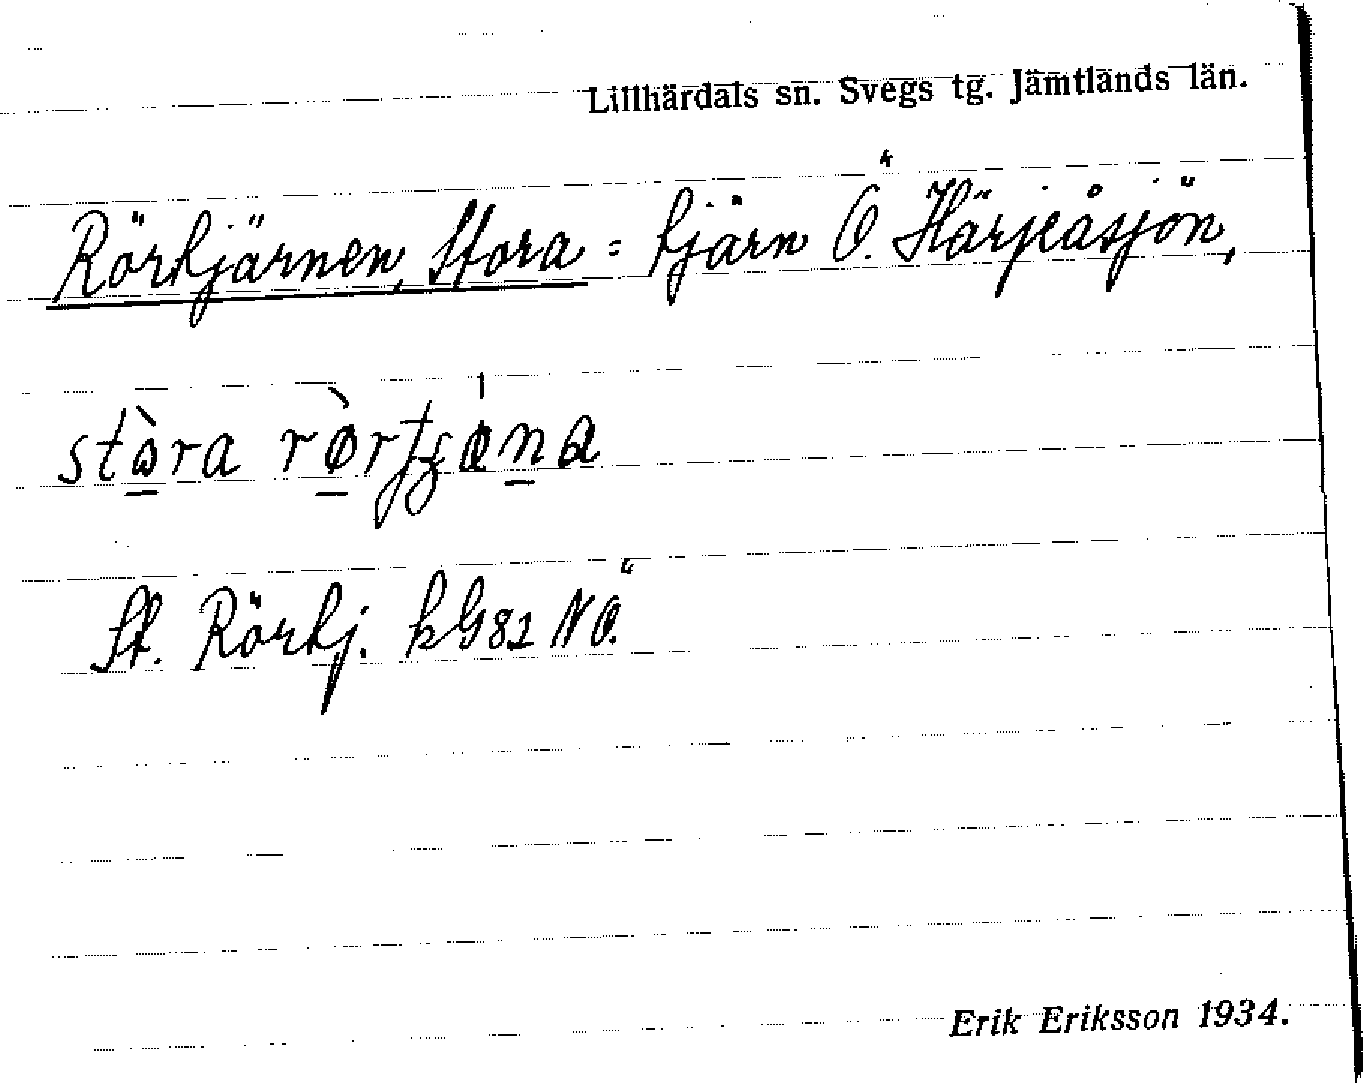 Lillhärdals sn. Svegs tg. Jämtlands län.
Rörtjärnen, Stora = tjärn Ö. Härjeåsjön,
St. Rörtj. kG82 NÖ.
Erik Eriksson 1934.